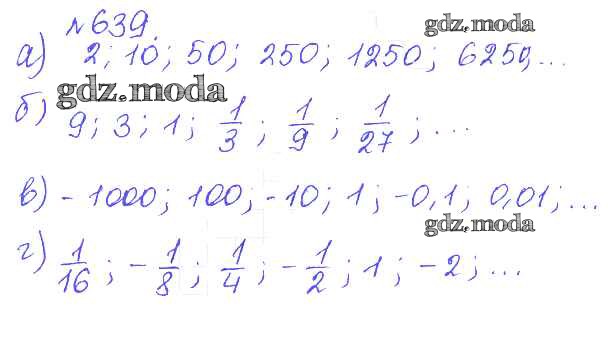 №639.
gdz.moda
а) 2; 10; 50; 250; 1250; 6250; ...
gdz.moda
б) 9; 3; 1; 1/3; 1/9; 1/27; ...
в) -1000; 100; -10; 1; -0,1; 0,01; ...
gdz.moda
г) 1/16; -1/8; 1/4; -1/2; 1; -2; ...